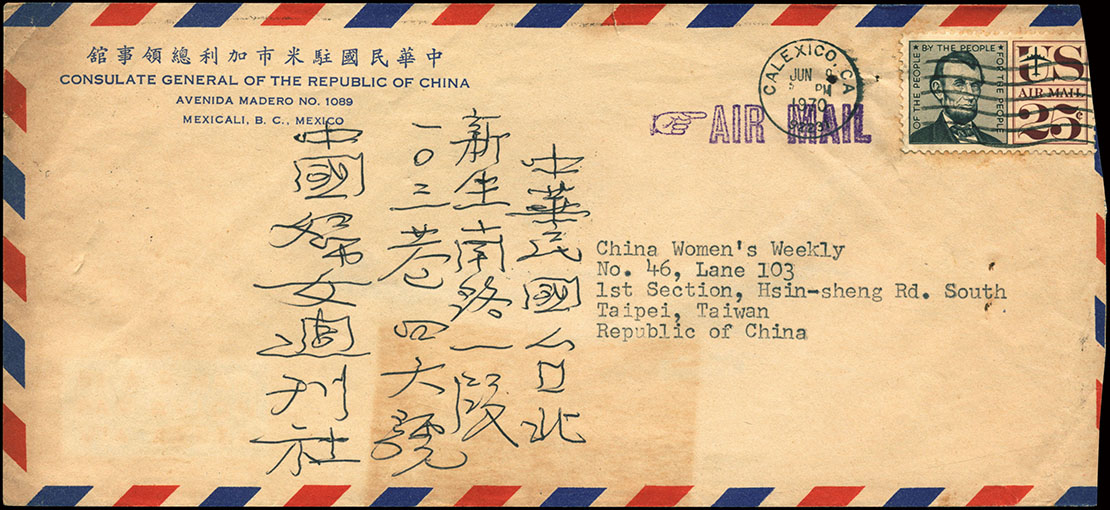 中華民國駐米市加利總領事館
CONSULATE GENERAL OF THE REPUBLIC OF CHINA
AVENIDA MADERO NO. 1089
MEXICALI, B. C., MEXICO
CALEXICO, CA
JUN
PM
1970
AIR MAIL
OF THE PEOPLE ★ BY THE PEOPLE ★ FOR THE PEOPLE
US
AIR MAIL
25¢
中華民國台北
新生南路一段
一〇三巷四六號
中國婦女週刊社
China Women's Weekly
No. 46, Lane 103
1st Section, Hsin-sheng Rd. South
Taipei, Taiwan
Republic of China